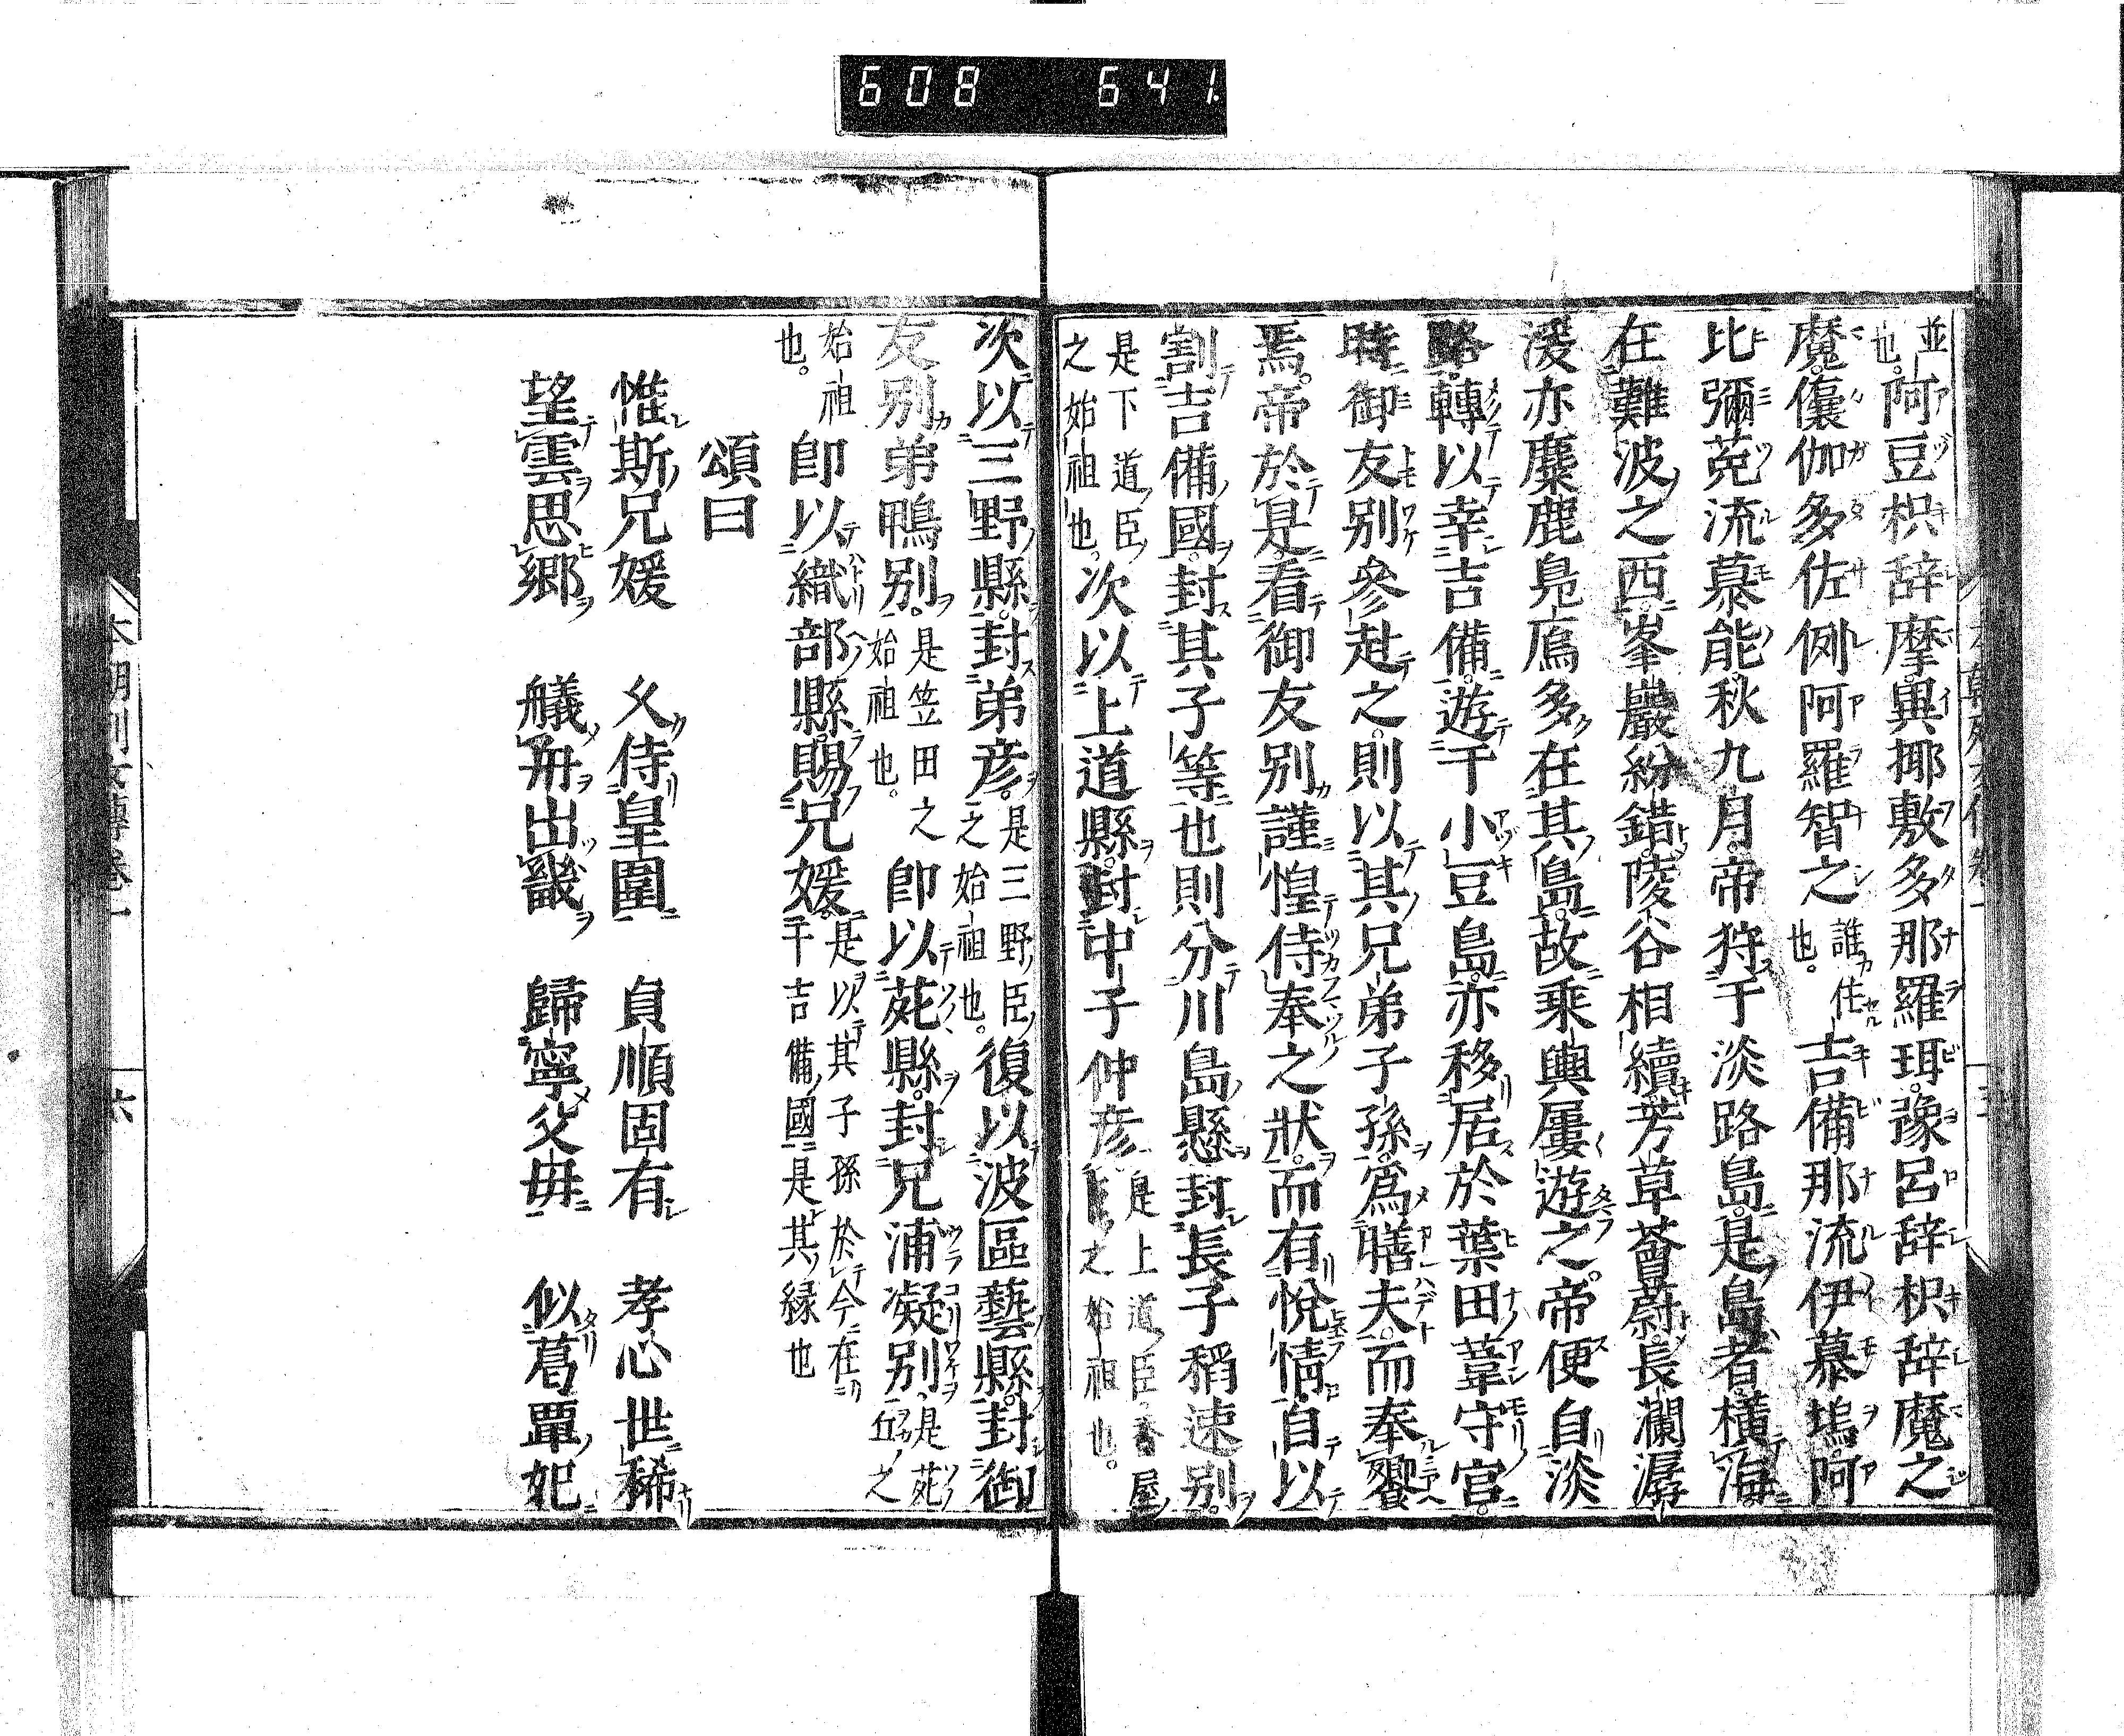 608 641
並也。阿豆枳辞摩異揶敷多那羅珥豫呂辞枳辞魔之
魔儴伽多佐例阿羅智之誰佐也。吉備那流伊慕塢阿
比彌菟流慕能秋九月帝狩于淡路島是島者横海
在難波之西峯巖紛錯陵谷相續芳草薈蔚長瀾潺
湲亦麋鹿鳧鴈多在其島故乘輿屢遊之帝便自淡
路轉以幸吉備遊于小豆島亦移居於葉田葦守宮
時御友別參赴之則以其兄弟子孫爲膳夫而奉饗
焉帝於是看御友別謹惶侍奉之狀而有悅情自以
割吉備國封其子等也則分川島懸封長子稻速別
是下道臣之始祖也。次以上道縣封中子仲彦是上道臣香屋之始祖也。
次以三野縣封弟彦是三野臣之始祖也。復以波區藝縣封御
友別弟鴨別是笠田之始祖也。即以苑縣封兄浦凝別是苑丘之
始祖也。即以織部縣賜兄媛是以其子孫於今在于吉備國是其緣也
頌曰
惟斯兄媛 父侍皇圍 貞順固有 孝心世稀
望雲思郷 艤舟出畿 歸寧父母 似葛覃妃
本朝列女傳卷一 六